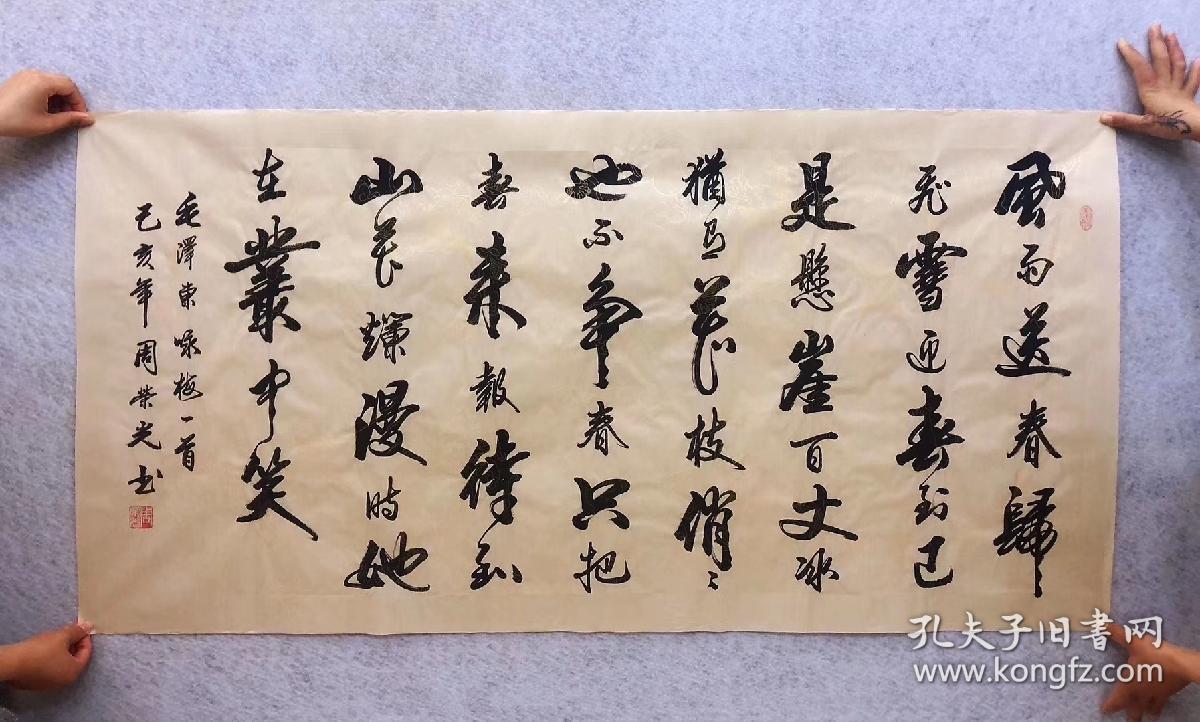 風雨送春歸
飛雪迎春到已
是懸崖百丈冰
猶有花枝俏〻
也不爭春只把
春来報待到
山花爛漫時她
在叢中笑
毛澤東咏梅一首
己亥年周榮光书
孔夫子旧書网
www.kongfz.com